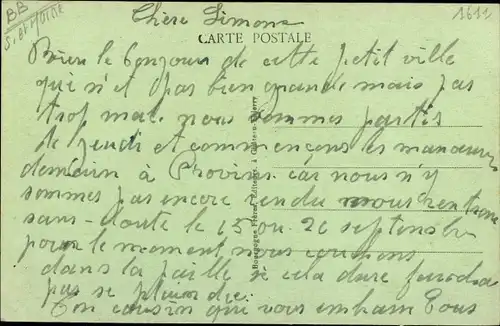 BB
S. et MARNE
1611
Chère Simone
CARTE POSTALE
Bien le bonjour de cette petit ville
qui n'et pas bien grande mais pas
trop mal. nous sommes partis
le jeudi et commençons les manœuvres
demain à Provins car nous n'y
sommes pas encore rendu nous rentrons
sans-doute le 15 ou 20 septembre
pour le moment nous couchons
dans la paille si cela dure faudra
pas se plaindre.
Ton cousin que vous embrass Tous
Bourgogne Frères, Editeurs, à